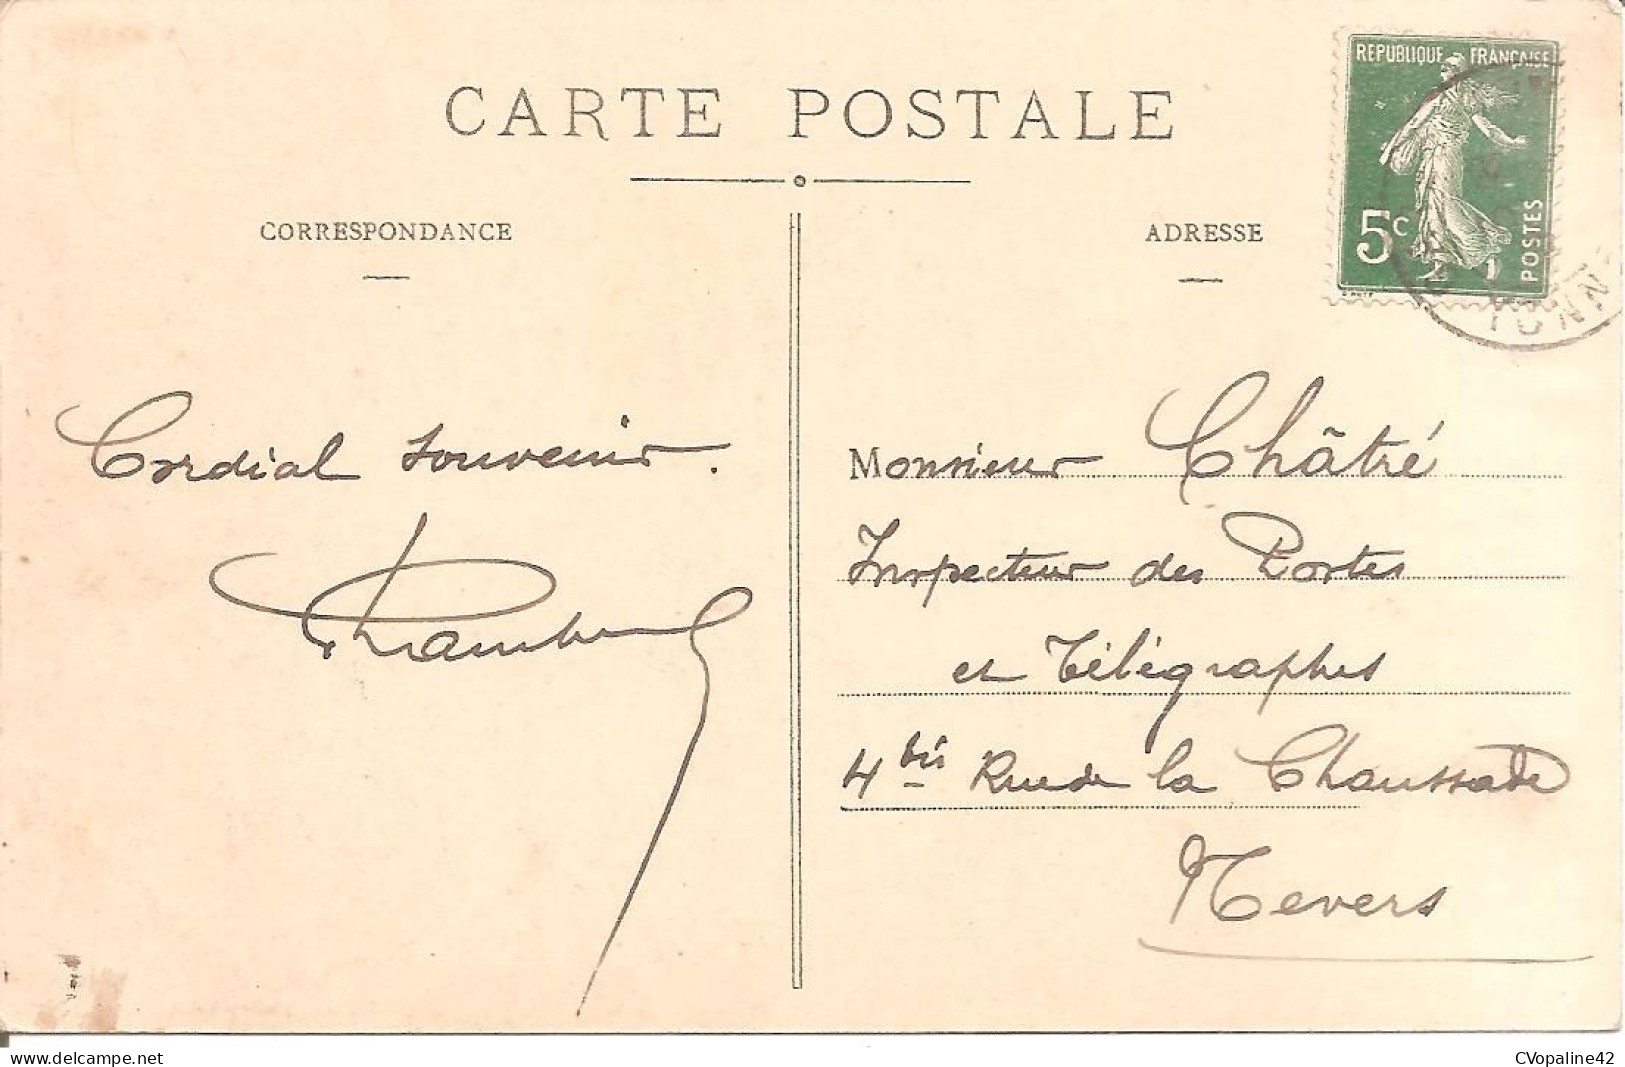 CARTE POSTALE
CORRESPONDANCE
ADRESSE
REPUBLIQUE FRANÇAISE
5c
POSTES
YONNE
Cordial souvenir.
Monsieur Châtré
Inspecteur des Postes
et Télégraphes
4 bis Rue de la Chaussade
Nevers
CVopaline42